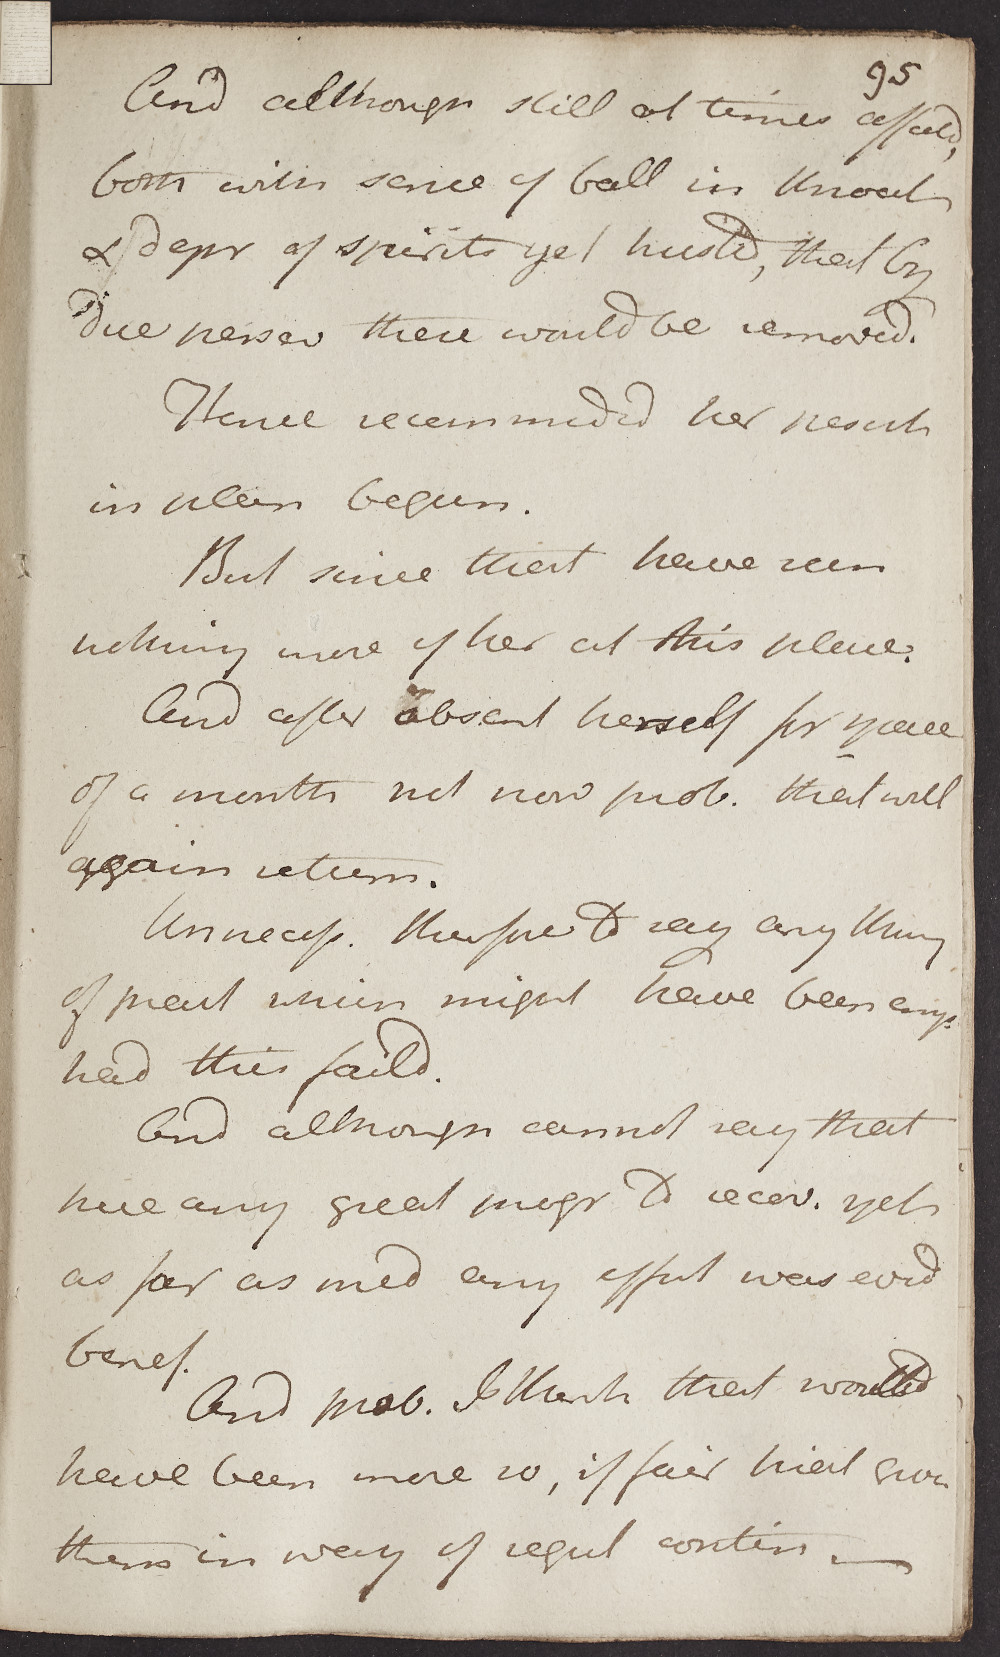 95
And although still at times affectd,
both with sense of ball in throat
& depr of spirits yet trustd, that by
due persev these would be removed.
Hence recommedd her persist
in plan begun.
But since that have seen
nothing more of her at this place.
And after absent herself for space
of a month not now prob. that will
again return.
Unnecess. therefore to say any thing
of pract which might have been emp.
had this faild.
And although cannot say that
here any great progr to recov. yet
as far as med any effect was evid
benef.
And prob. I think that would
have been more so, if fair trial given
them in way of regul contin